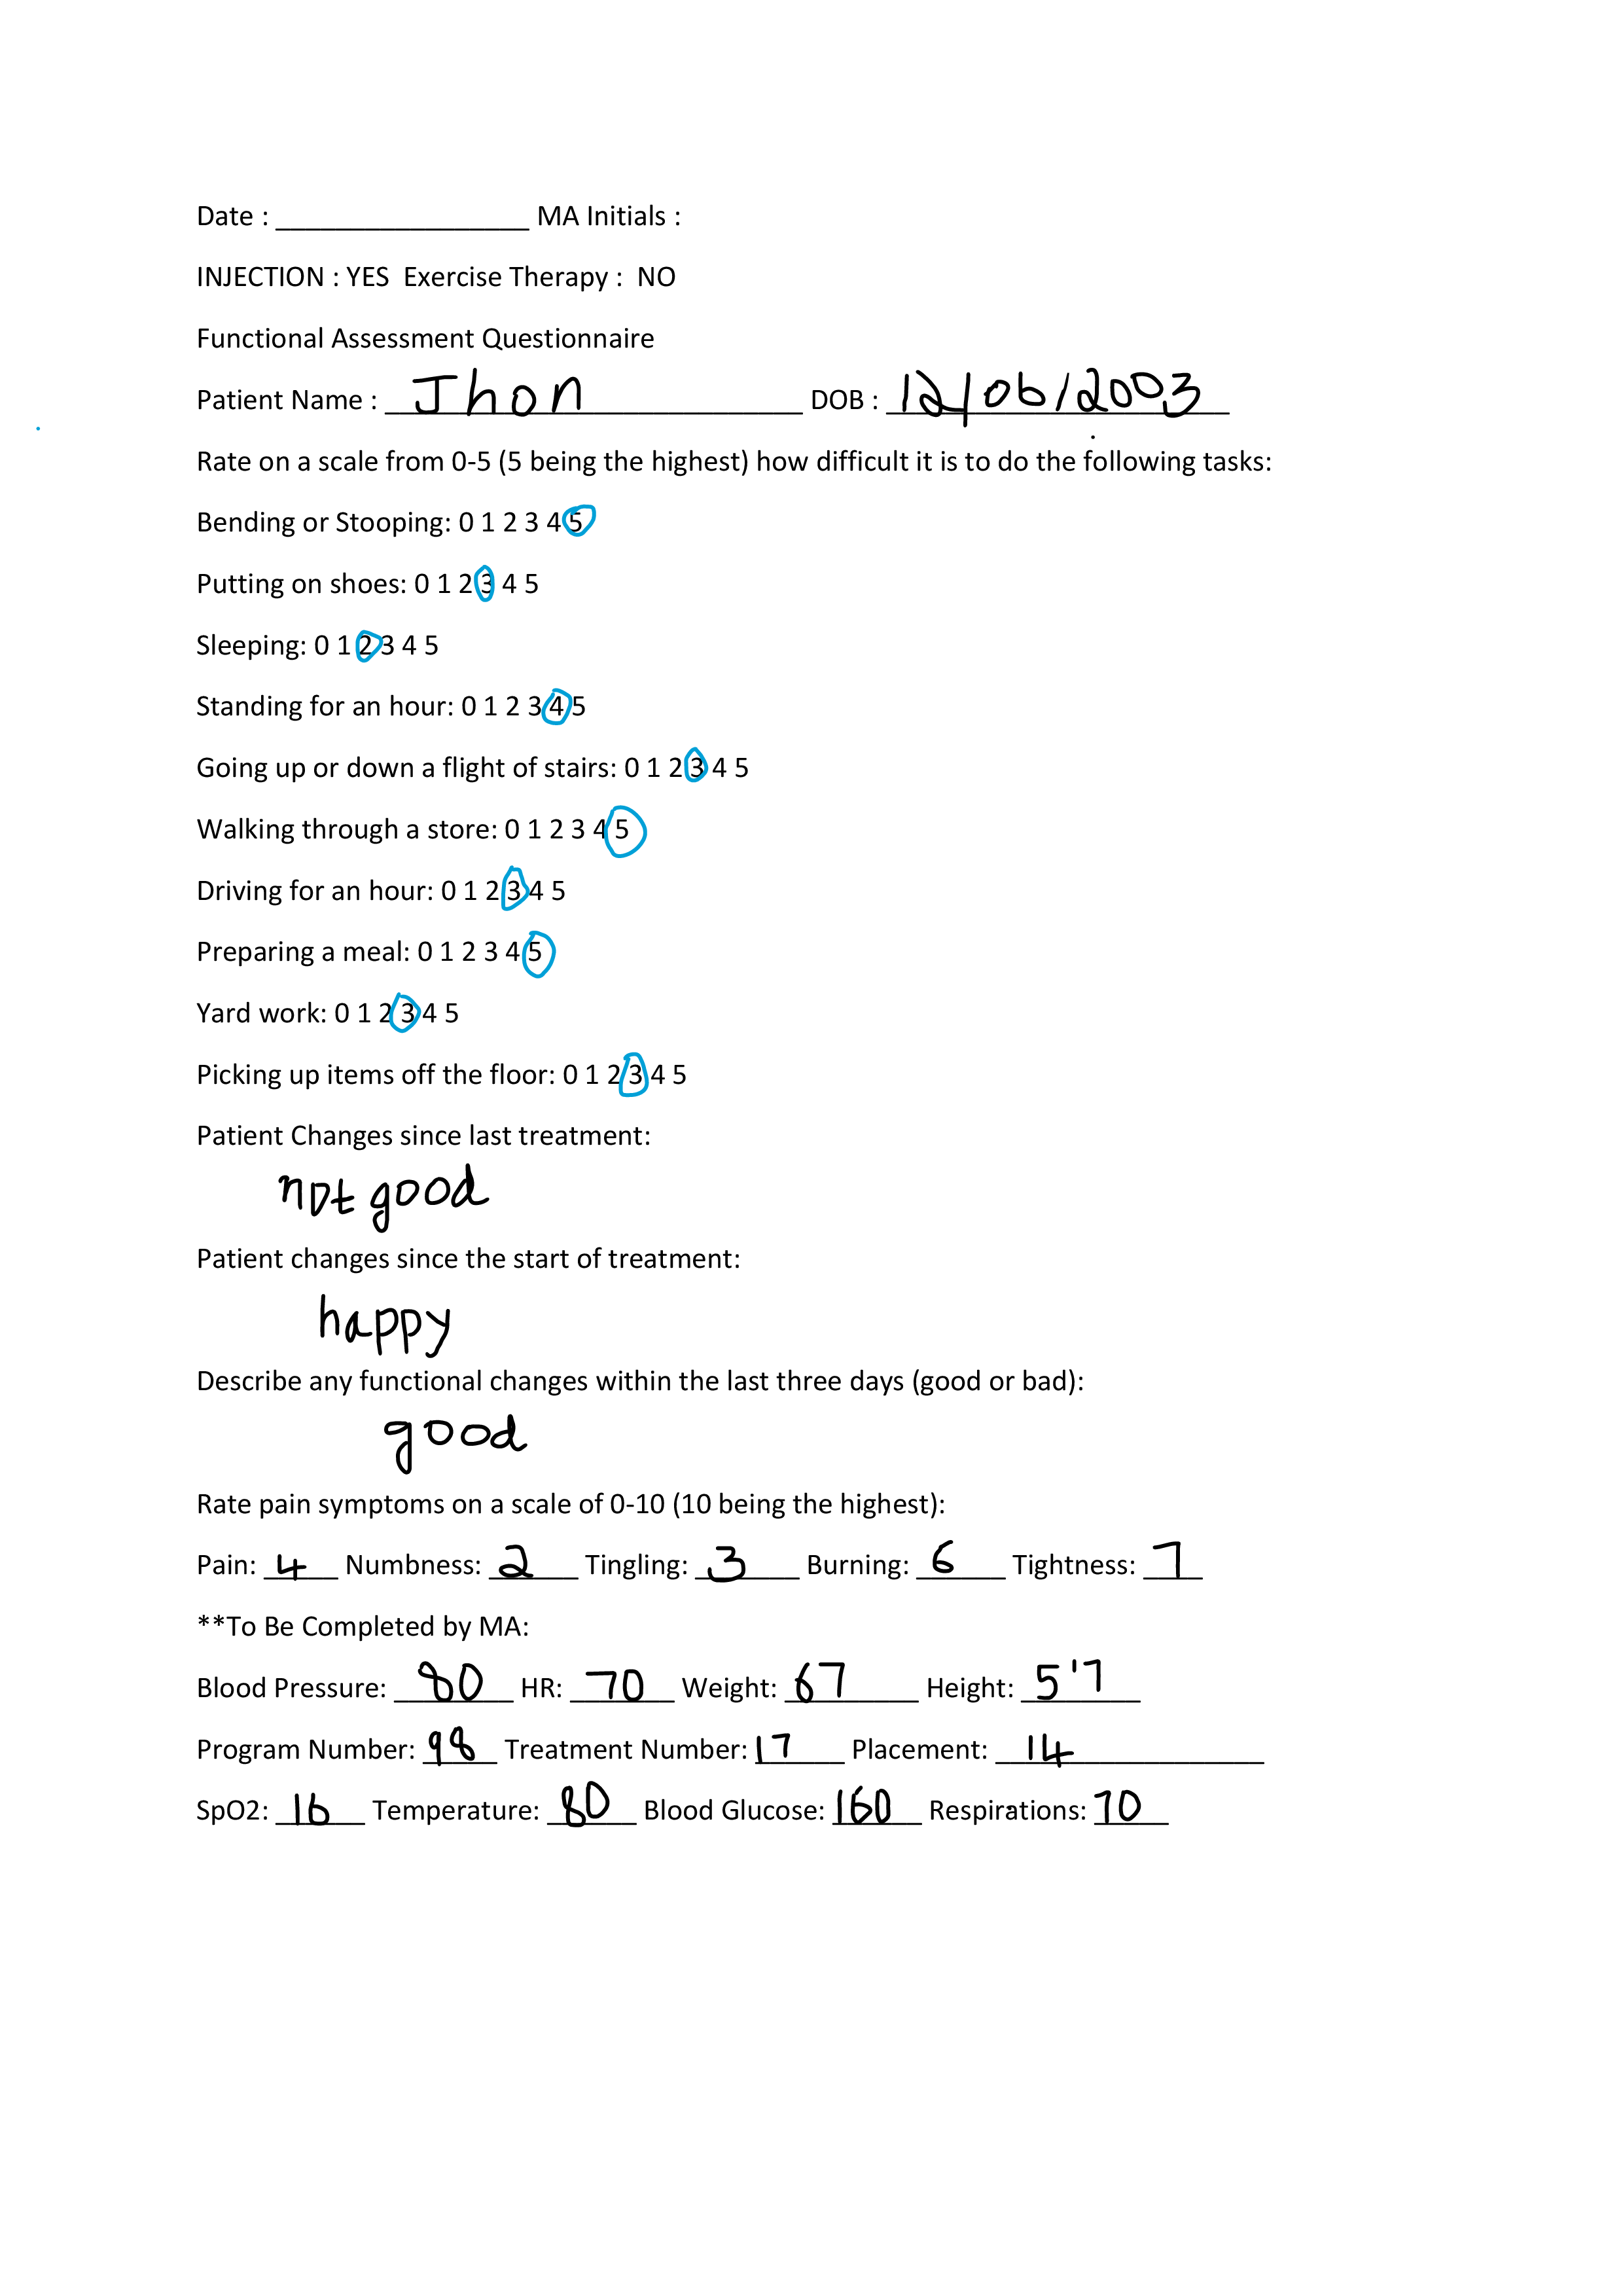 Date : _________________ MA Initials :
INJECTION : YES  Exercise Therapy :  NO
Functional Assessment Questionnaire
Patient Name : Jhon DOB : 12/06/2003
Rate on a scale from 0-5 (5 being the highest) how difficult it is to do the following tasks:
Bending or Stooping: 0 1 2 3 4 5
Putting on shoes: 0 1 2 3 4 5
Sleeping: 0 1 2 3 4 5
Standing for an hour: 0 1 2 3 4 5
Going up or down a flight of stairs: 0 1 2 3 4 5
Walking through a store: 0 1 2 3 4 5
Driving for an hour: 0 1 2 3 4 5
Preparing a meal: 0 1 2 3 4 5
Yard work: 0 1 2 3 4 5
Picking up items off the floor: 0 1 2 3 4 5
Patient Changes since last treatment:
not good
Patient changes since the start of treatment:
happy
Describe any functional changes within the last three days (good or bad):
good
Rate pain symptoms on a scale of 0-10 (10 being the highest):
Pain: 4 Numbness: 2 Tingling: 3 Burning: 6 Tightness: 7
**To Be Completed by MA:
Blood Pressure: 80 HR: 70 Weight: 67 Height: 5'7
Program Number: 98 Treatment Number: 17 Placement: 14
SpO2: 16 Temperature: 80 Blood Glucose: 160 Respirations: 70